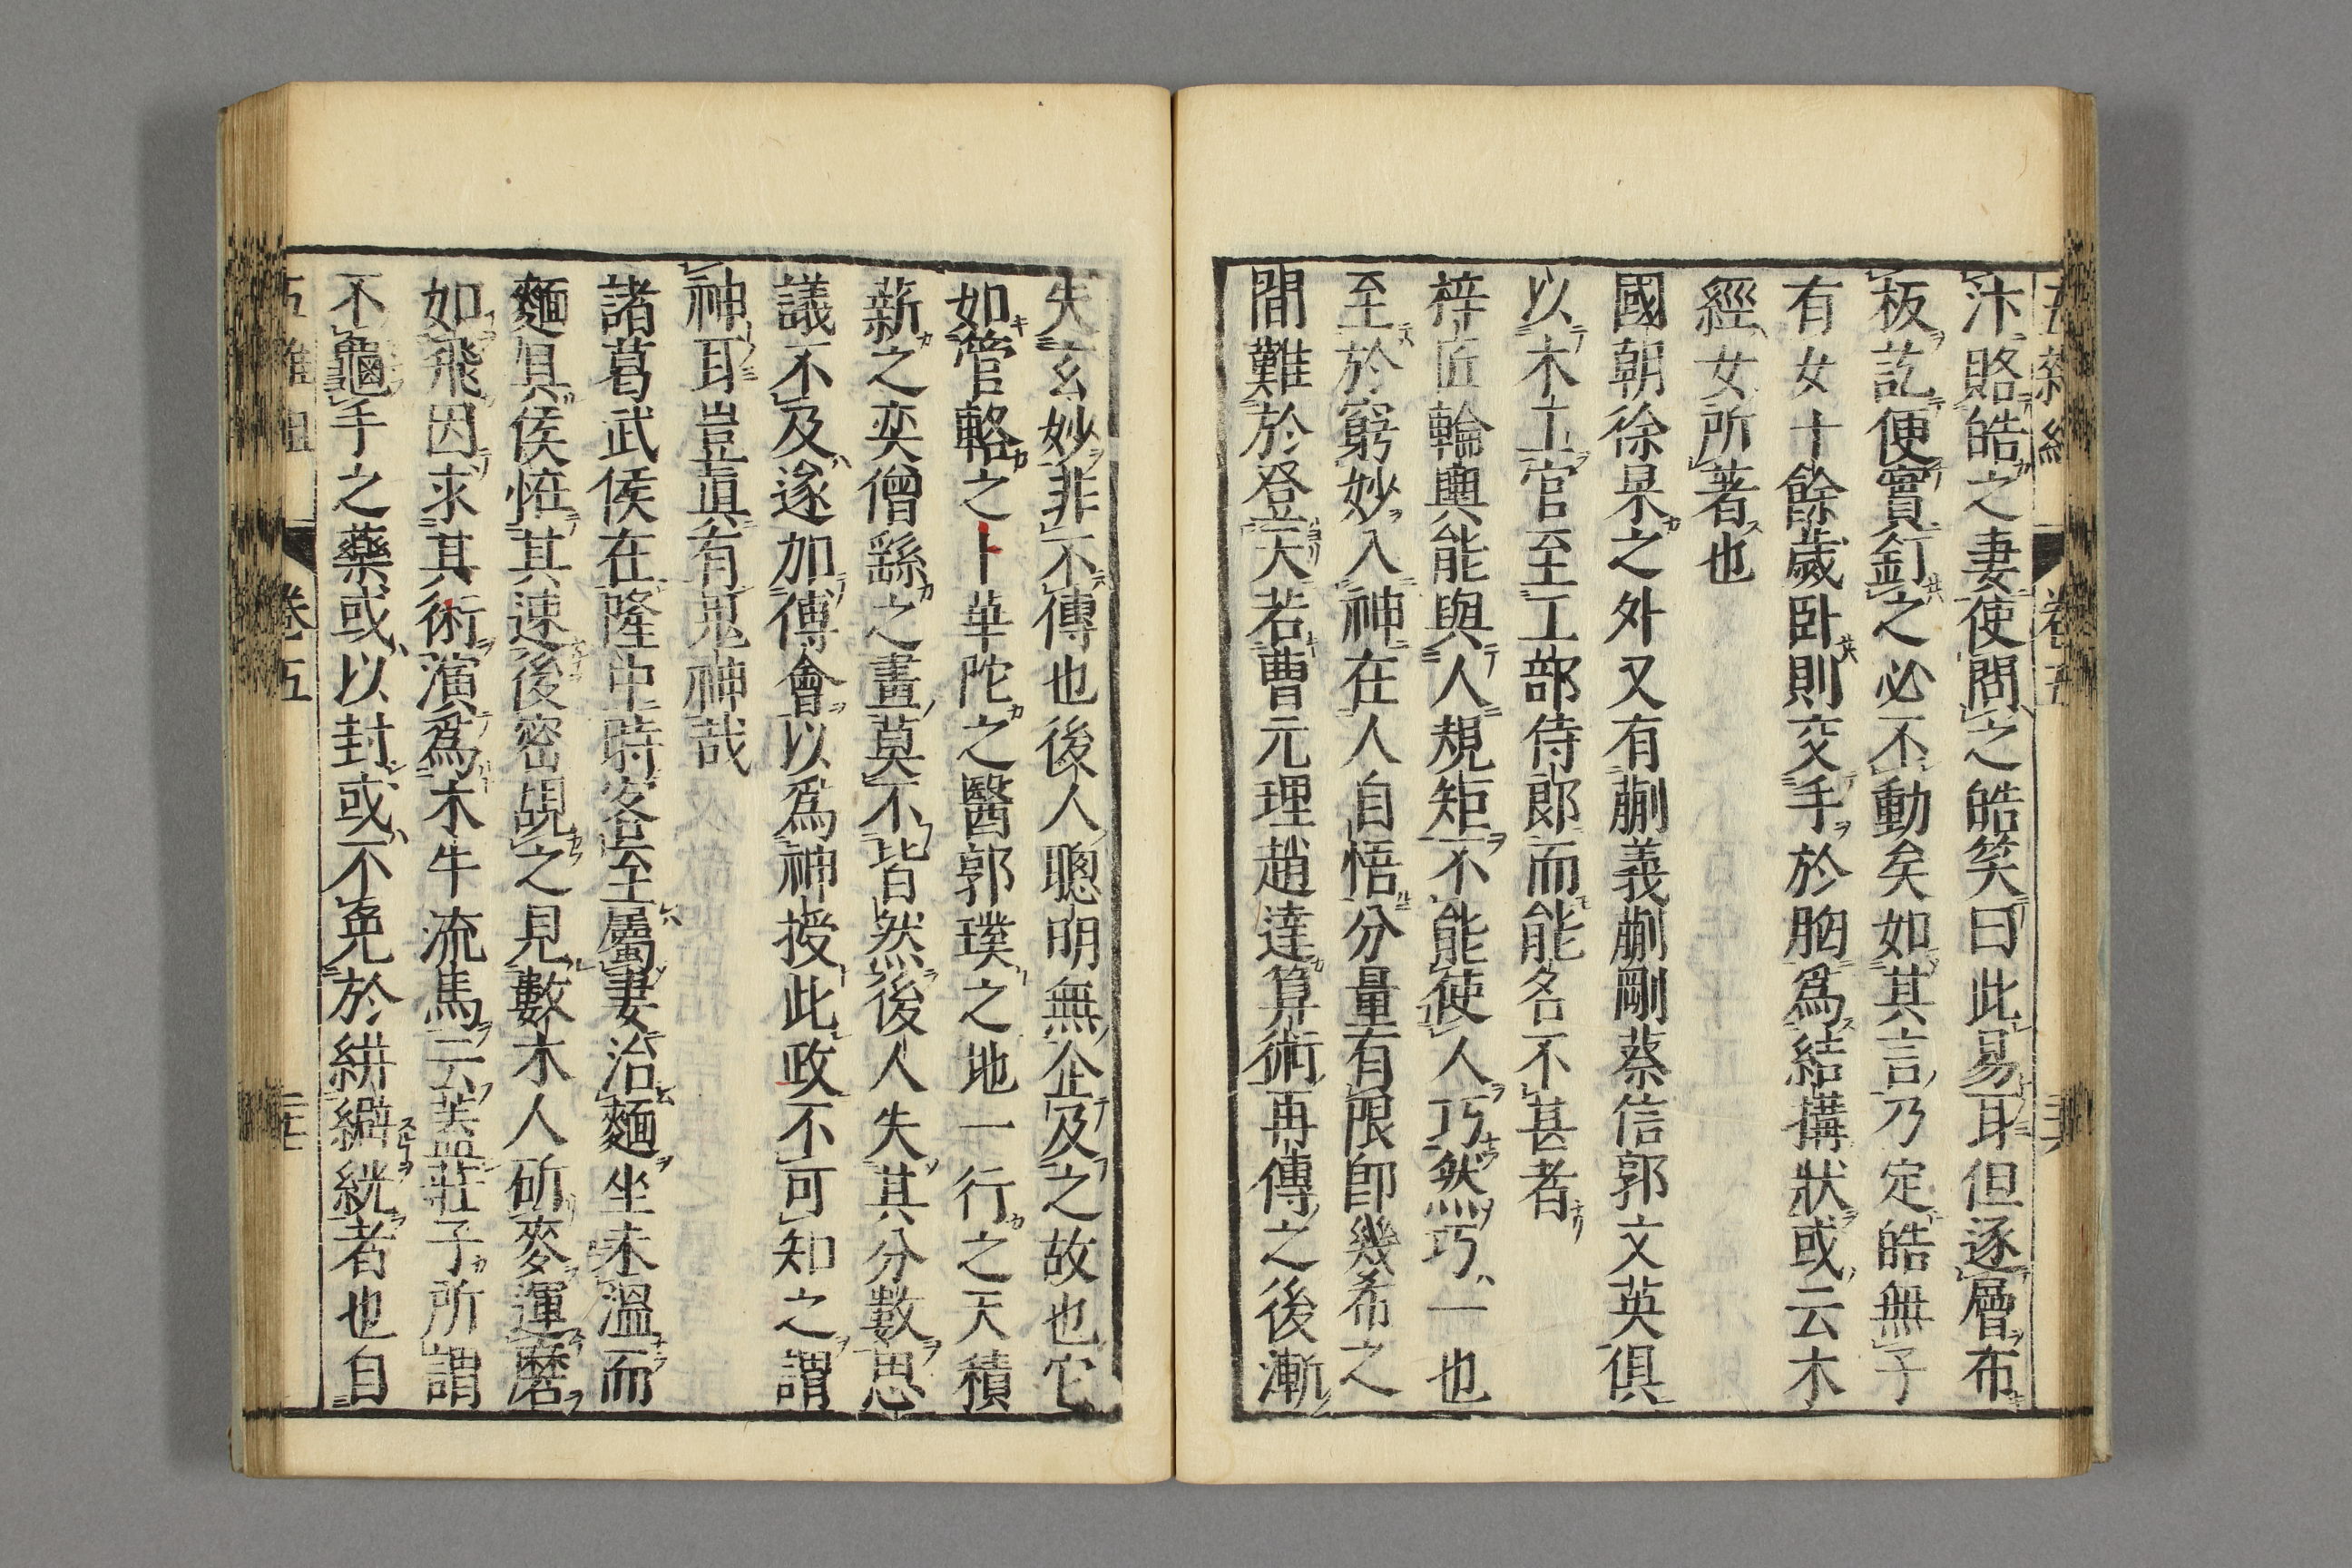 汴賂皓之妻使問之皓笑曰此易耳但逐層布
板訖便實釘之必不動矣如其言乃定皓無子
有女十餘歲卧則交手於胸爲結搆狀或云木
經女所著也
國朝徐杲之外又有蒯義蒯剛蔡信郭文英俱
以木工官至工部侍郎而能名不甚者
梓匠輪輿能與人規矩不能使人巧然巧一也
至於窮妙入神在人自悟分量有限卽幾希之
間難於登天若曹元理趙達算術再傳之後漸
失玄妙非不傳也後人聰明無企及之故也它
如管輅之卜華陀之醫郭璞之地一行之天積
薪之奕僧繇之畫莫不皆然後人失其分數思
議不及遂加傅會以爲神授此政不可知之謂
神耳豈眞有鬼神哉
諸葛武侯在隆中時客至屬妻治麵坐未溫而
麵具侯恠其速後密覘之見數木人斫麥運磨
如飛因求其術演爲木牛流馬云蓋莊子所謂
不龜手之藥或以封或不免於絣澼絖者也自
卷五